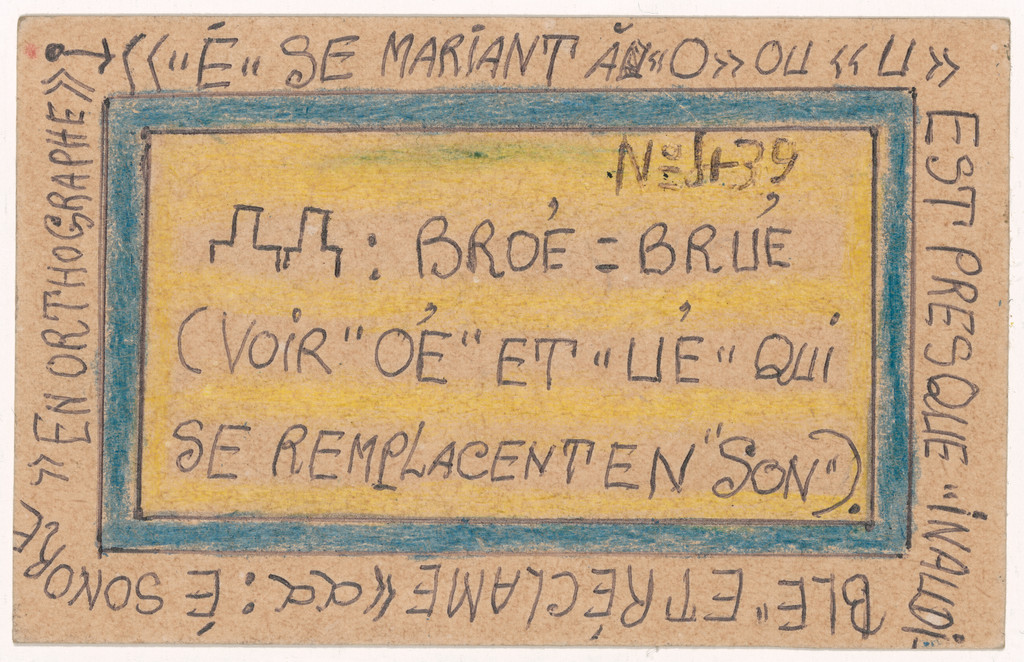 «"É" SE MARIANT À «O» OU «U»
EST PRESQUE "INAUDI
BLE" ET RÉCLAME «αα: É SONORE
» EN ORTHOGRAPHE»!
: BROÉ = BRUÉ
(VOIR "OÉ" ET "UÉ" QUI
SE REMPLACENT EN "SON").